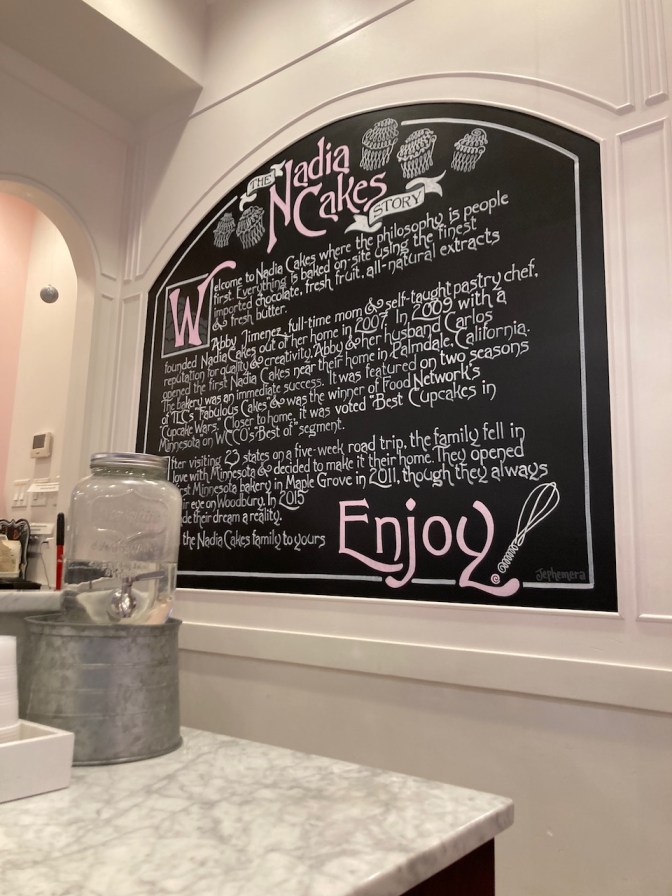 THE
Nadia
Cakes
STORY
Welcome to Nadia Cakes where the philosophy is people
first. Everything is baked on-site using the finest
imported chocolate, fresh fruit, all-natural extracts
& fresh butter.
Abby Jimenez, full-time mom & self-taught pastry chef,
founded Nadia Cakes out of her home in 2007. In 2009 with a
reputation for quality & creativity, Abby & her husband Carlos
opened the first Nadia Cakes near their home in Palmdale, California.
The bakery was an immediate success. It was featured on two seasons
of TLC's "Fabulous Cakes" & was the winner of Food Network's
"Cupcake Wars." Closer to home, it was voted "Best Cupcakes in
Minnesota on WCCO's "Best of" segment.
After visiting 23 states on a five-week road trip, the family fell in
love with Minnesota & decided to make it their home. They opened
st Minnesota bakery in Maple Grove in 2011, though they always
ir eye on Woodbury. In 2015
de their dream a reality.
the Nadia Cakes family to yours
Enjoy
Jephemera